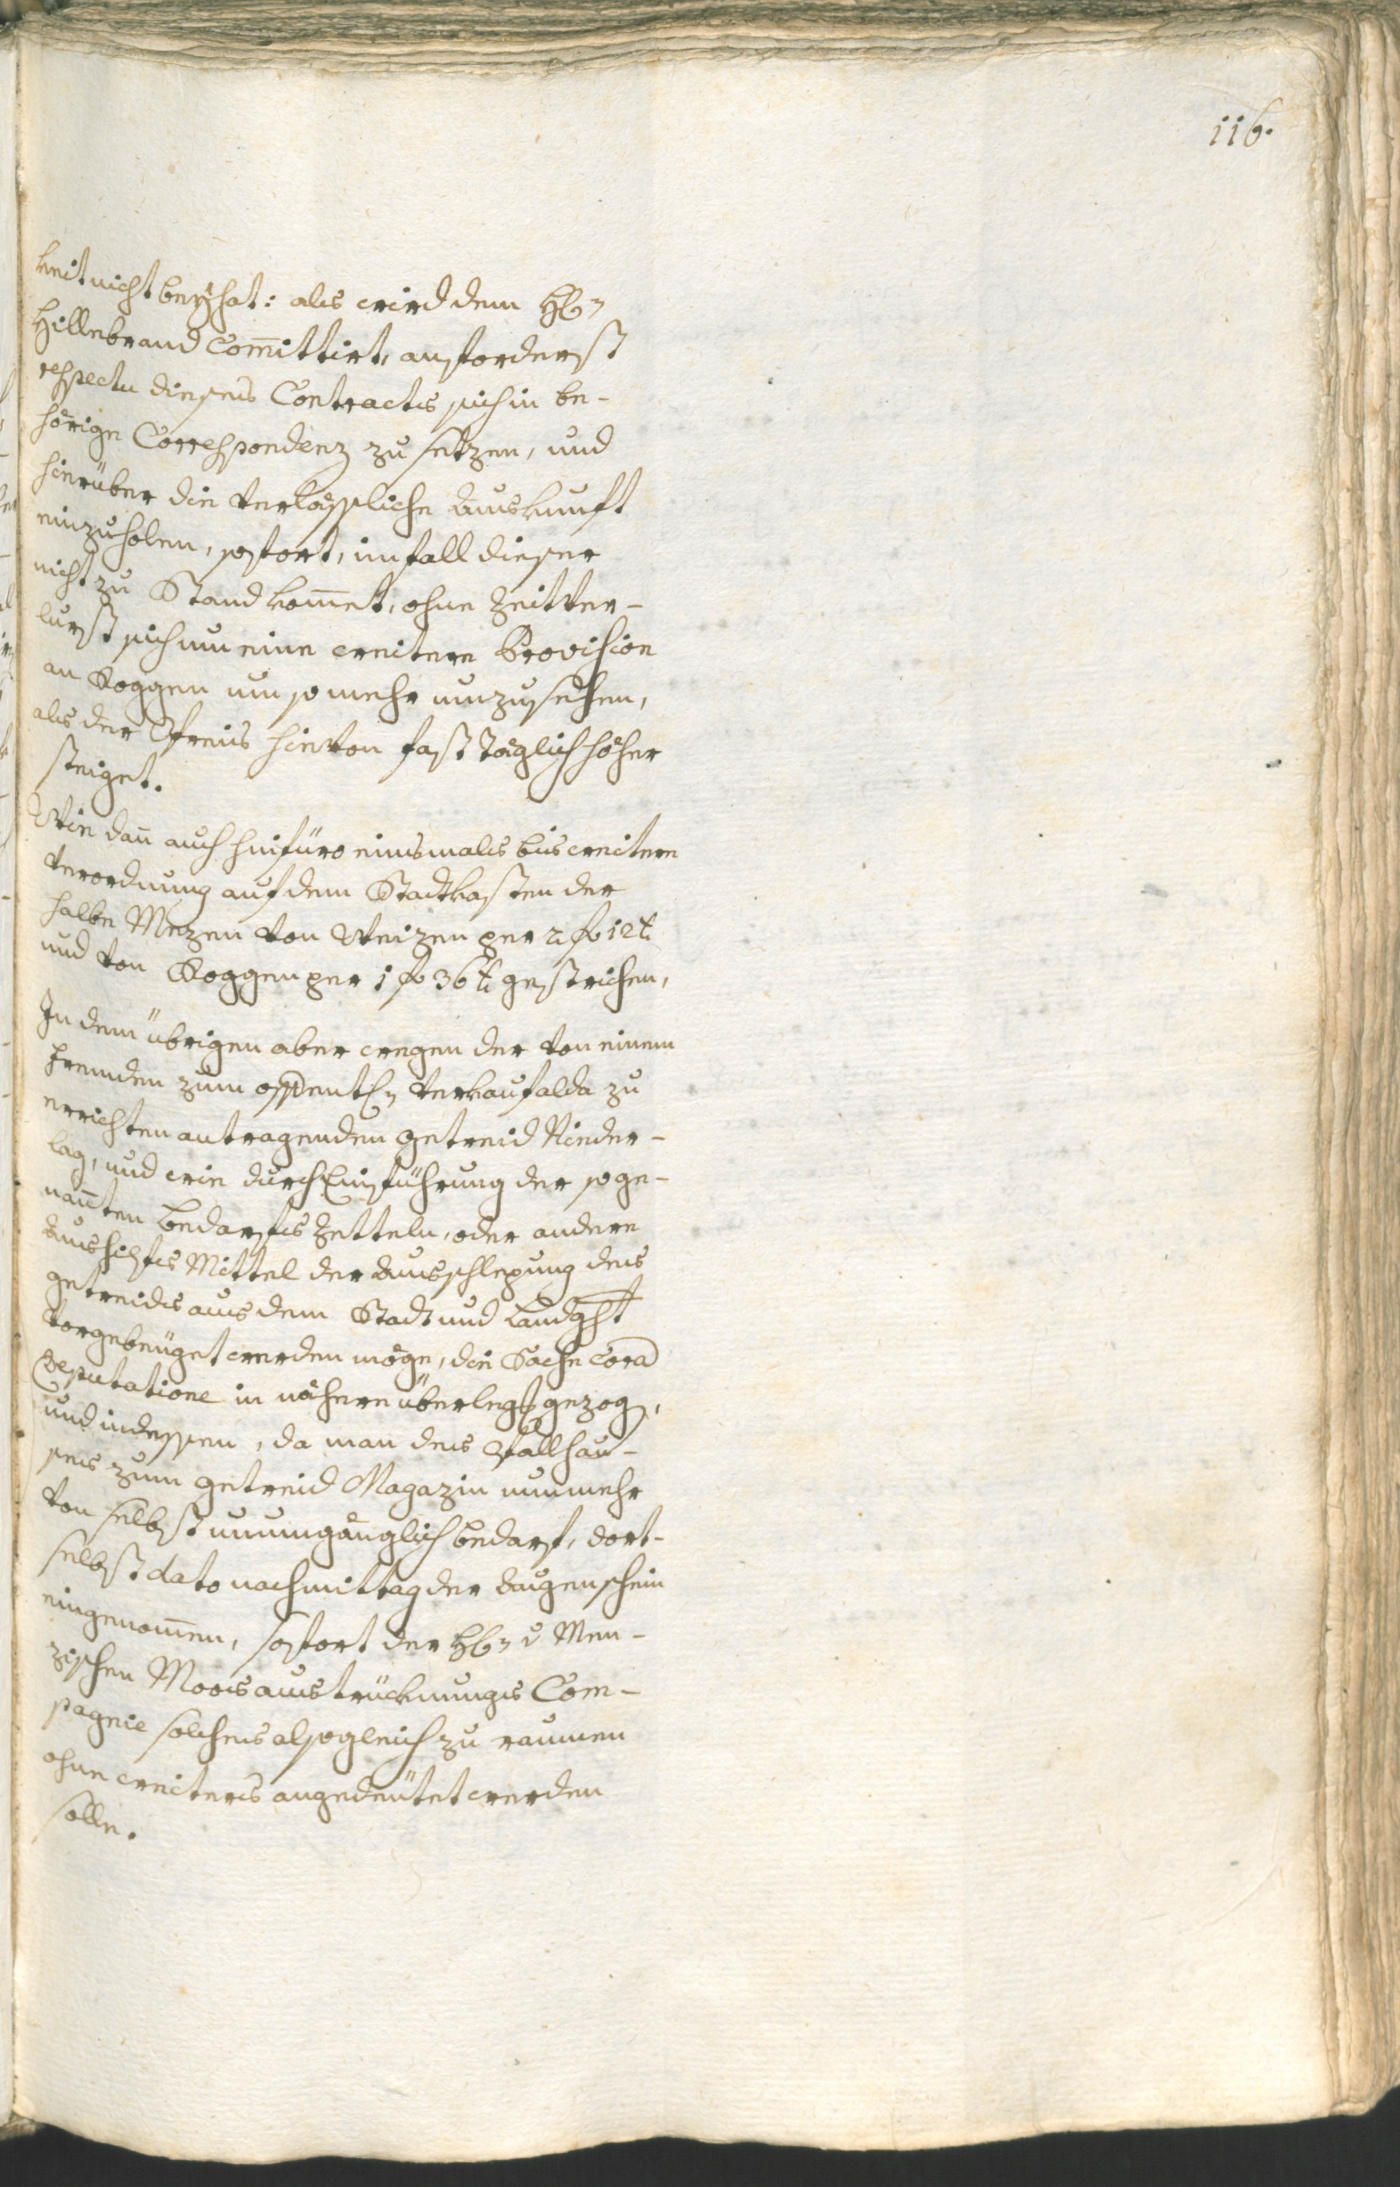 116.
keit nicht beyhat: als wird dem Hl:
Hillebrand Com̄ittirt, anforderst
respectu dieses Contracts sich in be-
hörige Correspondenz zu setzen, und
hierüber die verlässliche Auskunft
einzuholen, sofort, im fall dieser
nicht zu Stand kom̄et, ohne Zeitver-
lurst sich um eine weitere Provision
an Roggen um so mehr umzusehen,
als der Preis hievon fast täglich höher
steiget.
Wie dan̄ auch hinfüro einsmals bis weitere
verordnung auf dem Stadtkasten der
halbe Mezen von Weizen per 2 f 12 x
und von Roggen per 1 f 36 x gestrichen,
In dem übrigen aber wegen der von einem
fremden zum offentl: verkauf alda zu
errichten antragenden getreid Nieder-
lag, und wie durch Einführung der soge-
nan̄ten bedarfs Zetteln, oder andere
Aushilfs Mittel der Ausschlepung des
getreids aus dem Stadt und Landght
vorgebeuget werden möge, die Sache Cora
Deputatione in nähere überlegg gezog,
und indessen, da man des Ballhau-
ses zum getreid Magazin nunmehr
von selbst unumgänglich bedarf, dort-
selbst dato nachmittag der Augenschein
eingenom̄en, sofort der Hl: v Men-
zischen Moosaustrücknungs Com-
pagnie solches alsogleich zu raumen
ohne weiters angedeutet werden
solle.